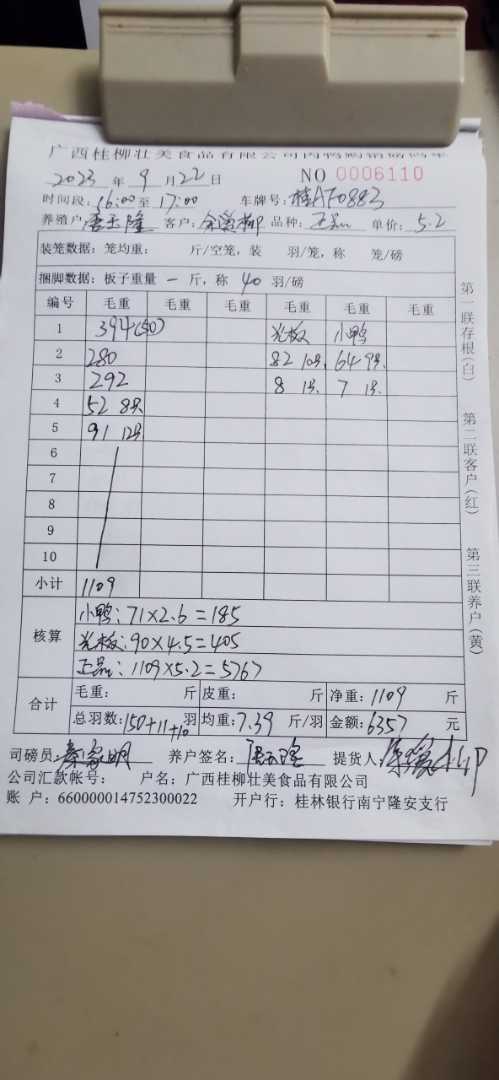 广西桂柳壮美食品有限公司肉鸭购销磅码单
2023 年 9 月 22 日 NO 0006110
时间段: 16:00 至 17:00 车牌号: 桂AF0883
养殖户: 隆 客户: 柳 品种: 正品 单价: 5.2
装笼数据: 笼均重: 斤/空笼, 装 羽/笼, 称 笼/磅
捆脚数据: 板子重量 一 斤, 称 40 羽/磅
编号 毛重 毛重 毛重 毛重 毛重 毛重
1 394(50) 光板 小鸭
2 280 82 10只 64 9只
3 292 8 1只 7 1只
4 52 8只
5 91 12只
6
7
8
9
10
小计 1109
核算
小鸭: 71×2.6=185
光板: 90×4.5=405
正品: 1109×5.2=5767
合计
毛重: 斤 皮重: 斤 净重: 1109 斤
总羽数: 150+11+10 羽 均重: 7.39 斤/羽 金额: 6357 元
司磅员: 秦家明 养户签名: 提货人:
公司汇款帐号: 户名: 广西桂柳壮美食品有限公司
账 户: 660000014752300022 开户行: 桂林银行南宁隆安支行
第一联存根(白)
第二联客户(红)
第三联养户(黄)